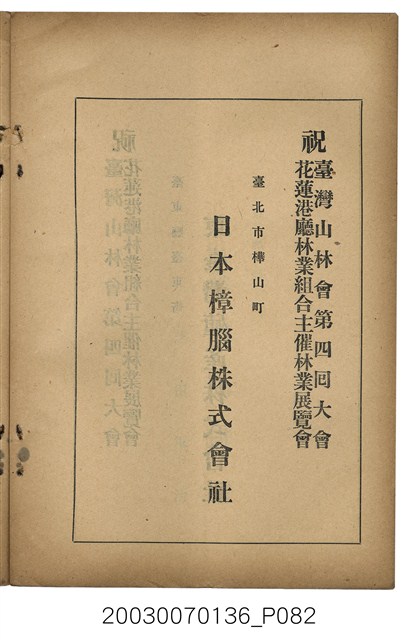 祝
臺灣山林會第四回大會
花蓮港廳林業組合主催林業展覽會
臺北市樺山町
日本樟腦株式會社
20030070136_P082